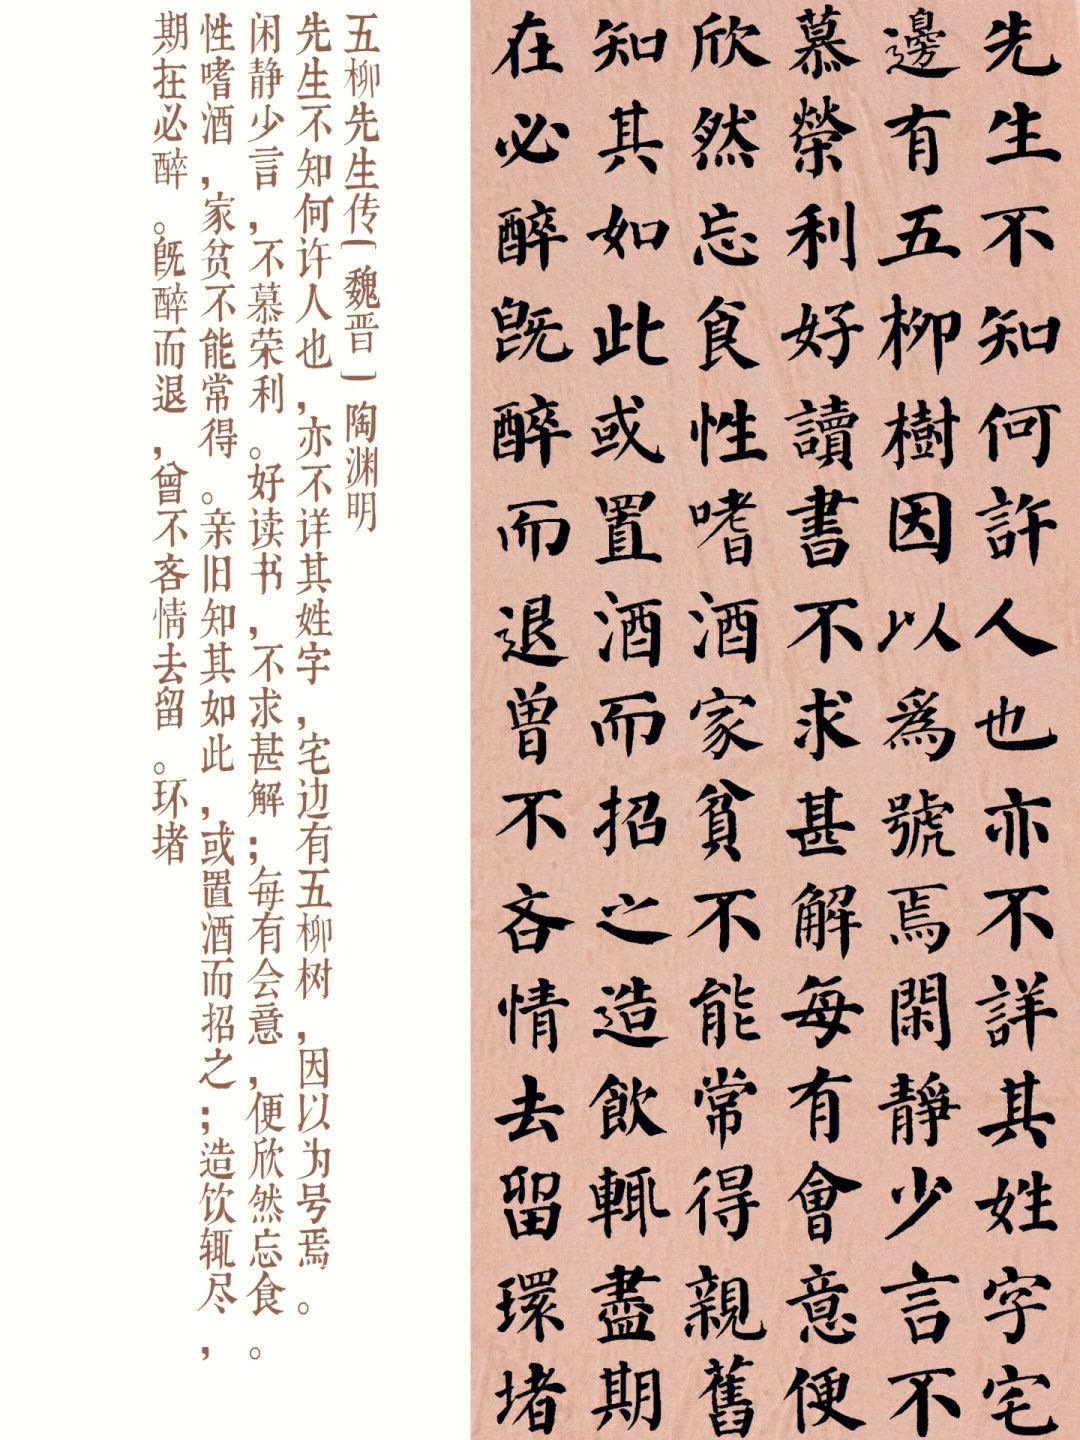 先生不知何許人也亦不詳其姓字宅
邊有五柳樹因以爲號焉閑靜少言不
慕榮利好讀書不求甚解每有會意便
欣然忘食性嗜酒家貧不能常得親舊
知其如此或置酒而招之造飲輒盡期
在必醉既醉而退曾不吝情去留環堵
五柳先生传(魏晋)陶渊明
先生不知何许人也,亦不详其姓字,宅边有五柳树,因以为号焉。
闲静少言,不慕荣利。好读书,不求甚解;每有会意,便欣然忘食。
性嗜酒,家贫不能常得。亲旧知其如此,或置酒而招之;造饮辄尽,
期在必醉。既醉而退,曾不吝情去留。环堵